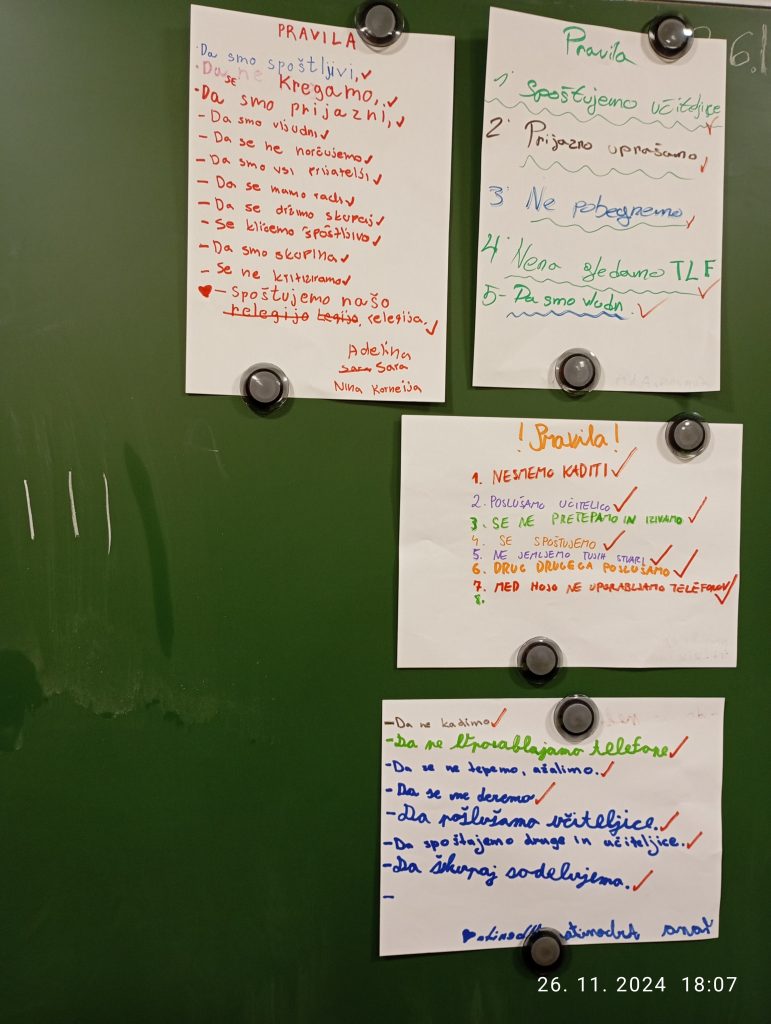 PRAVILA
·Da smo spoštljivi,✓
·Da SE ne kregamo,✓
·Da smo prijazni,✓
- Da smo vljudni✓
- Da se ne norčujemo✓
- Da smo vsi prijatelji✓
- Da se mamo radi✓
- Da se držimo skupaj✓
- Se kličemo spoštljivo✓
- Da smo skupina✓
- Se ne kritiziramo✓
♥ - Spoštujemo našo
relegijo legijo, relegija.✓
Adelina
Sara Sara
Nina Kornelja
Pravila
1· Spoštujemo učiteljice ✓
2· Prijazno uprašamo ✓
3· Ne pobegnemo ✓
4· Nena gledamo TLF ✓
5- Da smo vludn. ✓
6.1
! Pravila !
1. NESMEMO KADITI ✓
2. POSLUŠAMO UČITELICO ✓
3. SE NE PRETEPAMO IN IZIVAMO ✓
4. SE SPOŠTUJEMO ✓
5. NE JEMLJEMO TUJIH STVARI ✓
6. DRUG DRUGEGA POSLUŠAMO ✓
7. MED HOJO NE UPORABLJAMO TELEFONOV ✓
8. ✓
-Da ne kadimo ✓
-Da ne Uporabljajamo telefone ✓
-Da se ne tepemo, ažalimo. ✓
-Da se ne deremo ✓
-Da pošlušamo učiteljice. ✓
-Da spoštujemo druge in učiteljice. ✓
-Da škupaj sodelujema. ✓
-
26. 11. 2024 18:07